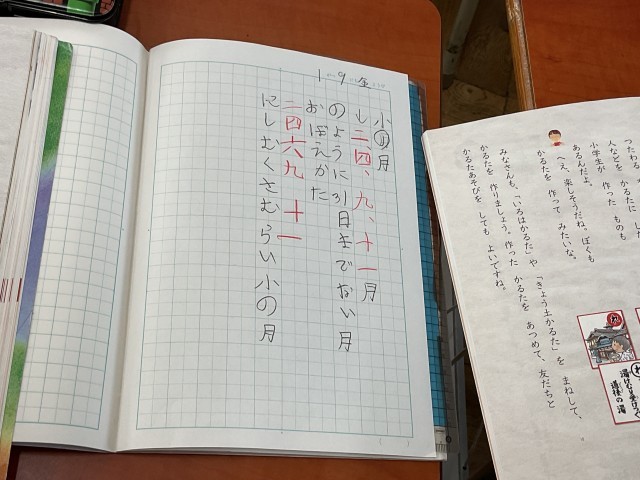 1 9 金
小の月
し二、四、九、十一月
のように31日までない月
おぼえかた
二四六九 十一
にしむくさむらい小の月
つたわる かるたに した
人などを
小学生が 作った ものも
あるんだよ。
へえ、楽しそうだね。ぼくも
かるたを 作って みたいな。
みなさんも、「いろはかるた」や 「きょう土かるた」を まねして、
かるたを 作りましょう。作った かるたを あつめて、友だちと
かるたあそびを しても よいですね。